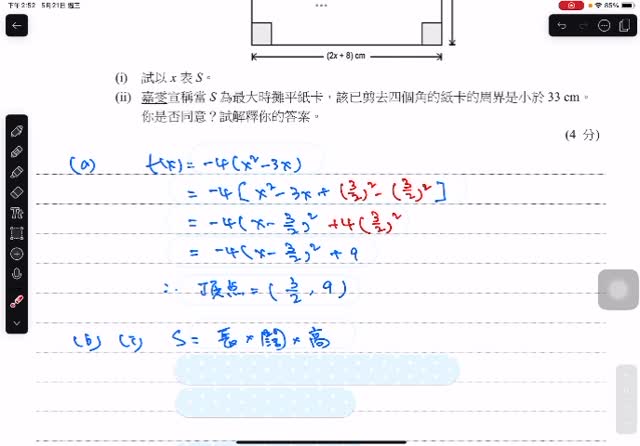 下午2:52 5月21日 週三
85%
(2x + 8) cm
(i) 試以 x 表 S。
(ii) 嘉雯宣稱當 S 為最大時攤平紙卡，該已剪去四個角的紙卡的周界是小於 33 cm。
你是否同意？試解釋你的答案。
(4 分)
(a) f(x) = -4(x² - 3x)
= -4[x² - 3x + (3/2)² - (3/2)²]
= -4(x - 3/2)² + 4(3/2)²
= -4(x - 3/2)² + 9
∴ 頂点 = (3/2, 9)
(b) (i) S = 長 × 闊 × 高